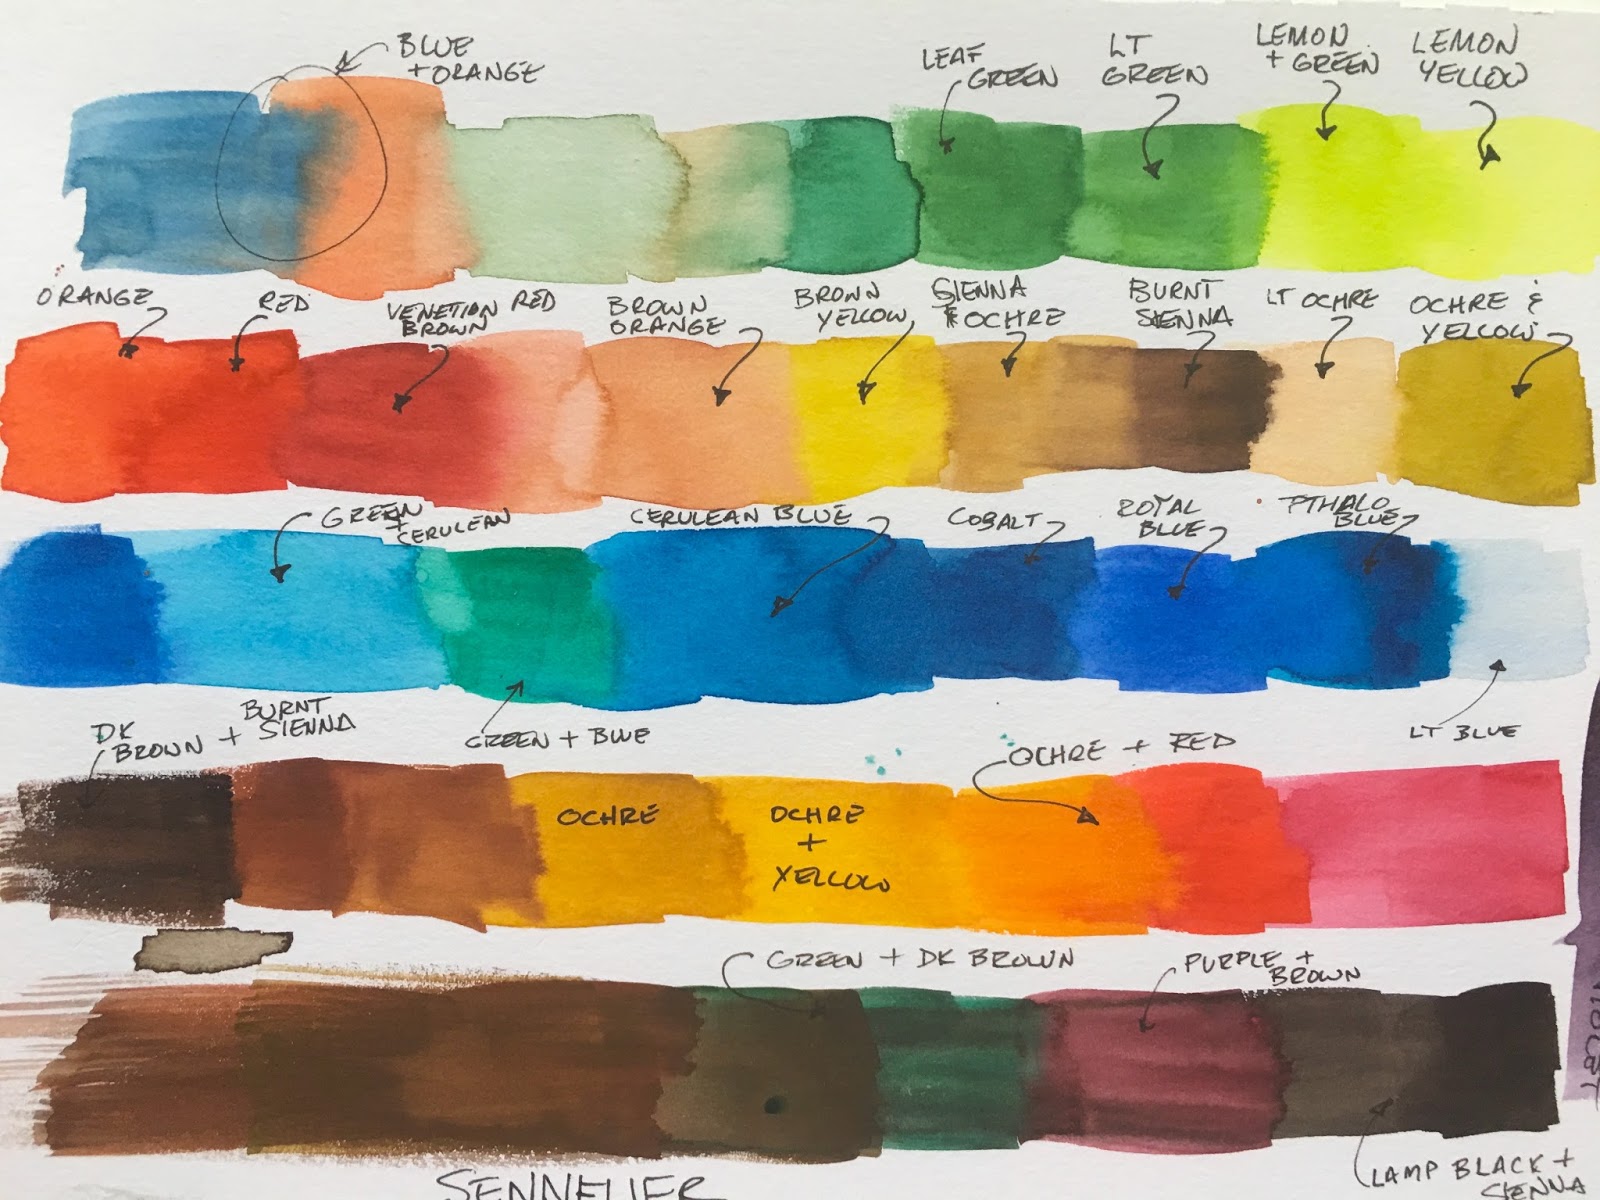 BLUE
+ ORANGE
LEAF
GREEN
LT
GREEN
LEMON
+ GREEN
LEMON
YELLOW
ORANGE
RED
VENETION RED
BROWN
BROWN
ORANGE
BROWN
YELLOW
SIENNA
& OCHRE
BURNT
SIENNA
LT OCHRE
OCHRE &
YELLOW
GREEN
+
CERULEAN
CERULEAN BLUE
COBALT
ROYAL
BLUE
PTHALO
BLUE
GREEN + BLUE
LT BLUE
DK
BROWN + BURNT
SIENNA
OCHRE
OCHRE
+
YELLOW
OCHRE + RED
GREEN + DK BROWN
PURPLE +
BROWN
LAMP BLACK +
SIENNA
VIOLET
SENNELIER